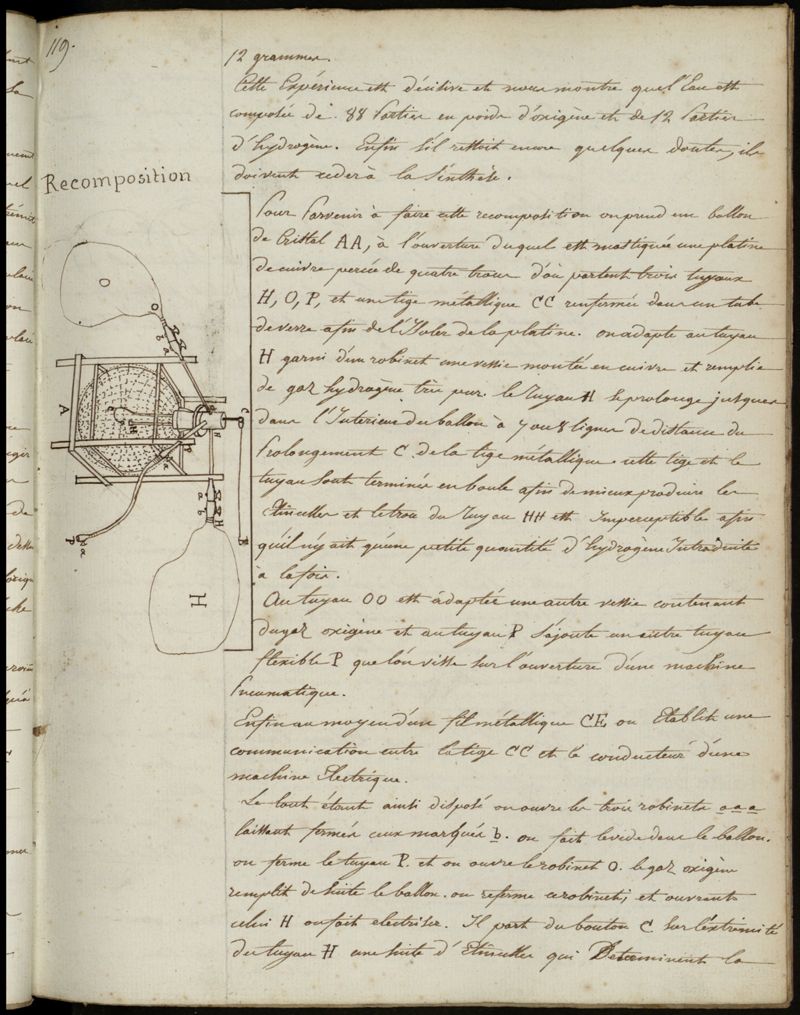 119.
12 grammes.
Cette Expérience est décisive et nous montre que l'Eau est
composée de 88 Parties en poids d'oxigène et de 12 Parties
d'hydrogène. Enfin s'il restoit encore quelques doutes, ils
doivent ceder à la Sinthèse.
Recomposition
Pour Parvenir à faire cette recomposition on prend un ballon
de Cristal AA, à l'ouverture duquel est mastiquée une platine
de cuivre percée de quatre trous d'où partent trois tuyaux
H, O, P, et une tige métallique CC renfermée dans un tube
de verre afin de l'Isoler de la platine. on adapte au tuyau
H garni d'un robinet une vessie montée en cuivre et remplie
de gaz hydrogène très pur. le Tuyau H se prolonge jusques
dans l'Interieur du ballon à 7 ou 8 lignes de distance du
Prolongement C de la tige métallique. cette tige et le
tuyau sont terminés en boule afin de mieux produire les
Etincelles et le trou du Tuyau HH est Imperceptible afin
qu'il n'y ait qu'une petite quantité d'hydrogène Introduite
à la fois.
Au tuyau OO est adaptée une autre vessie contenant
du gaz oxigène et au tuyau P s'ajoute un autre tuyau
flexible P que l'on visse sur l'ouverture d'une machine
Pneumatique.
Enfin au moyen d'un fil métallique CE on Etablit une
communication entre la tige CC et le conducteur d'une
machine Electrique.
Le tout étant ainsi disposé on ouvre les trois robinets a a a
laissant fermés ceux marqués b. on fait le vide dans le ballon.
on ferme le tuyau P. et on ouvre le robinet O. le gaz oxigène
remplit de suite le ballon. on referme ce robinet, et ouvrant
celui H on fait electriser. Il part du bouton C sur l'extrémité
du tuyau H une suite d'Etincelles qui Determinent la